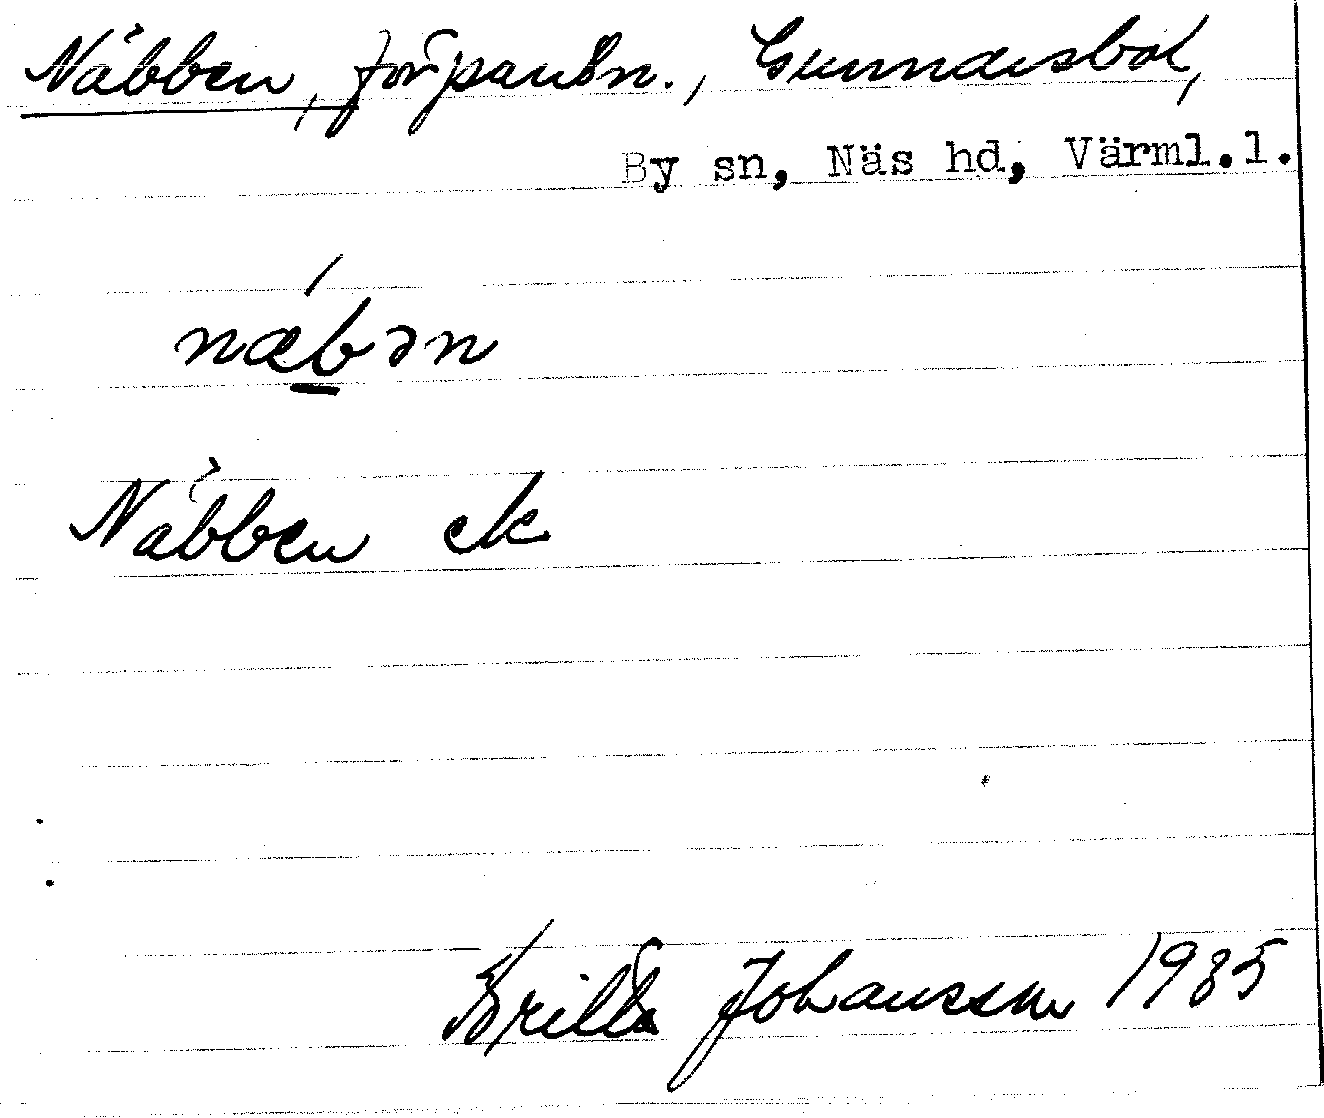 Näbben, förpantn., Gunnarsbol,
By sn, Näs hd, Värml.l.
næ´bən
Näbben ek
Britta Johansson 1935